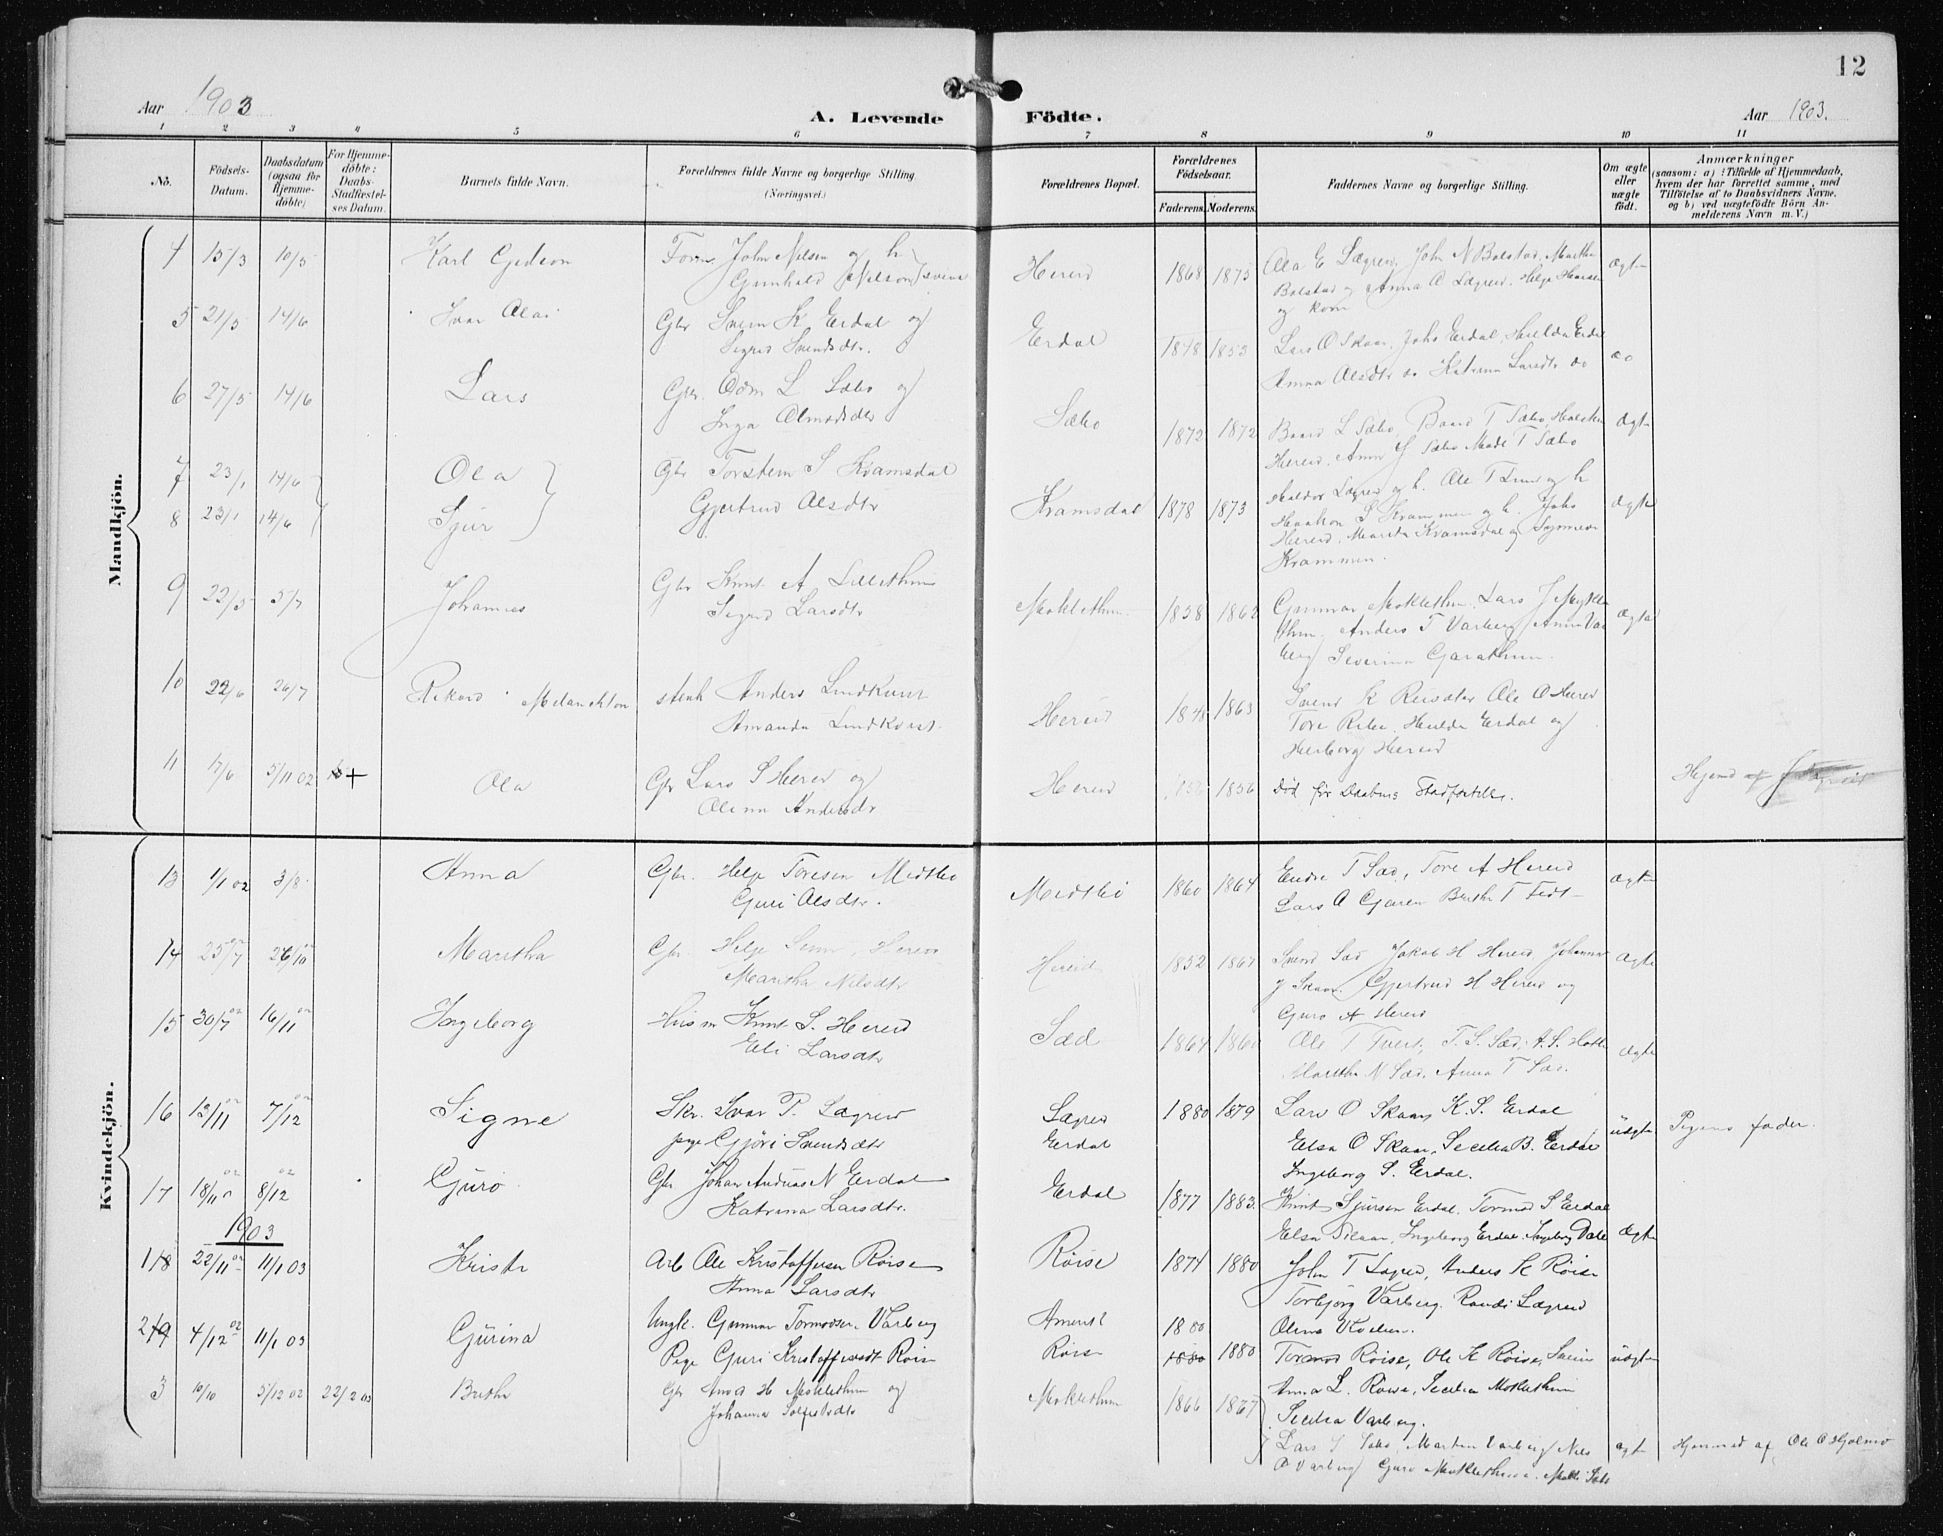 12
Aar 1903
A. Levende Födte.
Aar 1903.
1 2 3 4 5 6 7 8 9 10 11
No.
Födsels-
Datum.
Daabsdatum
(ogsaa for
Hjemme-
döbte)
For Hjemme-
döbte:
Daabs-
Stadfæstel-
ses Datum.
Barnets fulde Navn.
Forældrenes fulde Navne og borgerlige Stilling
(Næringsvei.)
Forældrenes Bopæl.
Forældrenes
Födselsaar.
Faderens. Moderens.
Faddernes Navne og borgerlige Stilling.
Om ægte
eller
uægte
födt.
Anmærkninger
(saasom: a) i Tilfælde af Hjemmedaab,
hvem der har forrettet samme, med
Tilföielse af to Daabsvidners Navne,
og b) ved uægtefödte Börn An-
melderens Navn m. V.)
Mandkjön.
4 15/3 10/5 Karl Gedeon
Form John Nilsen og h
Gunhild Nelson
Hereid 1868 1875
Ola E Lægreid, John N Bolstad, Martha
Bolstad og Anna O Lægreid. Helge Hansen
og kone
ægte
5 21/5 14/6 Ivar Olai
Gbr Svein K Erdal og
Sigrid Svendsdtr.
Erdal 1878 1853
Lars O Skaar, Johs Erdal, Hulda Erdal
Anna Olsdtr do Katrina Larsdtr do
do
6 27/5 14/6 Lars
Gbr. Odm L Sæbo og
Inga Olmodsdtr
Sæbo 1872 1872
Baard L Sæbo, Baard T Sæbo, Halsten
Hereid, Anna J Sæbo Made T Sæbo
ægte
7 23/1 14/6 Ola
8 23/1 14/6 Sjur
Gbr Torstein S Kvamsdal
Gjertrud Olsdtr
Kvamsdal 1878 1873
Haldor Lægreid og h. Ole T og h
Haakon S Krammen og h. Johs
Hereid, Marita Kvamsdal og
Krammen.
ægte
9 22/5 5/7 Johannes
Gbr Knut A
Sigrid Larsdtr
Moklethun. 1858 1862
Gunnar Moklethun, Lars J Mykle
thun, Anders T Varberg, Anna Var
berg Severina Garathun.
ægte
10 22/6 26/7 Rikard Melanchton
stenh Anders Lindkvist
Amanda Lindkvist.
Hereid 1848 1863
Svend K Ole O Hereid
Tore Hulda Erdal og
Herborg Hereid
11 17/6 5/11 02 + Ola
Gbr Lars S Hereid og
Olina Andersdtr
Hereid 1856
Död för Daabens Stadfæstelse.
Hjemd af
Kvindekjön.
13 1/1 02 3/8 Anna
Gbr. Helge Toresen Midtbö
Guri Olsdtr.
Midtbö 1860 1864
Endre T Sæd, Tore A Hereid
Lars A Garen Brithe T Fedt
ægte
14 25/7 02 26/10 02 Maritha
Gbr. Helge Hereid
Maritha Nilsdtr
Hereid 1852 1861
Svend Sæd Jakob H Hereid Johannes
J Skaar. Gjertrud H Hereid og
Guro A Hereid
ægte
15 30/7 02 16/11 02 Ingeborg
Husm Knut S. Hereid
Eli Larsdtr
Sæd 1864 1860
Ole T Tveit, T. S. Sæd, A. S.
Maritha N Sæd, Anna T Sæd.
ægte
16 13/11 02 7/12 Signe
Skr. Ivar P. Lægreid
pige Gjöri Svendsdtr
Lægreid
Erdal
1880 1879
Lars O Skaar, K. S. Erdal
Elsa O Skaar, Secilia B. Erdal
Ingeborg S. Erdal.
uægte Pigens fader.
17 18/11 02 8/12 02 Guro
Gbr Johan Andreas N Erdal
Katrina Larsdtr.
Erdal 1877 1883.
Knut Sjursen Erdal, Tormod S Erdal
Elsa Skaar, Ingeborg Erdal. Ingeborg Dale
ægte
1903
118 22/11 02 11/1 03 Kristi
Arb Ole Kristoffersen Röise
Anna Larsdtr
Röise 1874 1880
John T Lægreid, Anders K Röise
Torbjörg Varberg. Randi Lægreid
Olina
219 4/12 02 11/1 03 Gurina
Ungk. Gunnar Tormodsen Varberg
Pige Guri Kristoffersdtr Röise
Amerik
Röise
1880
1880 1880
Tormod Röise, Ole K Röise,
Anna L. Röise, Secilia Moklethun
Secilia Varberg.
uægte
3 10/10 5/12 02 22/2 03 Brithe
Gbr H Moklethun og
Johanna
Moklethun 1866 1867
Lars S Sæbo, Marten Varberg Nils
O Varberg Guro Moklethun. Sæbo
ægte Hjemmed af Ole O Hjelmo